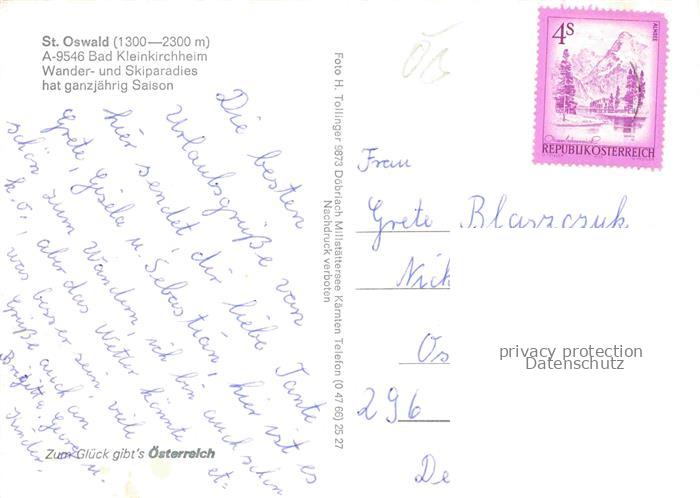 St. Oswald (1300—2300 m)
A-9546 Bad Kleinkirchheim
Wander- und Skiparadies
hat ganzjährig Saison
Die besten
Urlaubsgrüße von
hier sendet dir liebe Tante
Grete, Gisela u. Sebastian, hier ist es
schön zum Wandern, ich bin auch schon
k.o., aber das Wetter könnte et-
was besser sein, viele
Grüße auch an
Brigitte, u.
Kinder.
Zum Glück gibt's Österreich
Foto H. Tollinger 9873 Döbriach Millstättersee Kärnten Telefon (0 47 66) 25 27
Nachdruck verboten
4S
ALMSEE
REPUBLIK ÖSTERREICH
Frau
Grete Blaszczuk
Nick
Os
296
De
privacy protection
Datenschutz